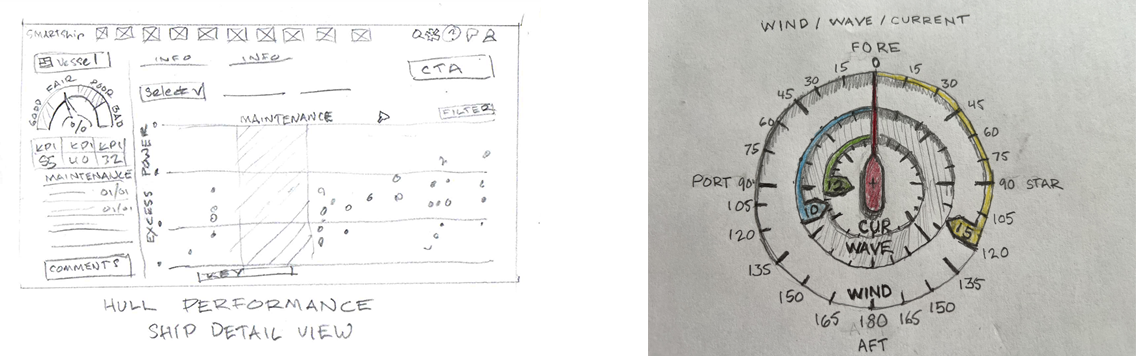 SMARTShip
?
Vessel
INFO
INFO
CTA
Select V
GOOD
FAIR
POOR
BAD
%
MAINTENANCE
FILTER
KPI
KPI
KPI
55
40
32
MAINTENANCE
01/01
01/01
EXCESS POWER
COMMENTS
KEY
HULL PERFORMANCE
SHIP DETAIL VIEW
WIND / WAVE / CURRENT
FORE
0
15
15
30
30
45
45
60
60
75
75
PORT 90
90 STAR
105
105
120
120
135
135
150
150
165
165
180
AFT
12
10
15
CUR
WAVE
WIND